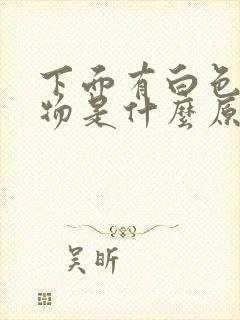 下面有白色
物是什麼原
吴昕